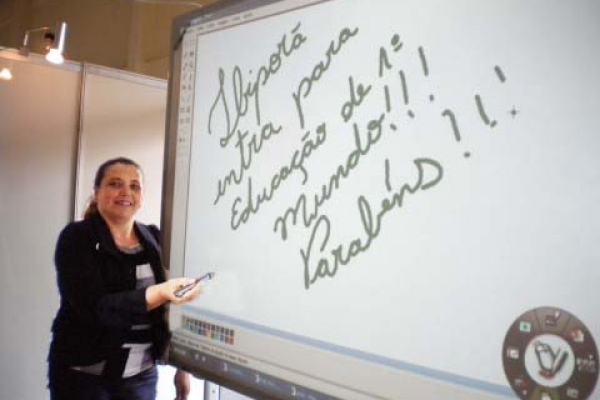 Ibiporã
intra para
Educação de 1º
Mundo!!!
Parabéns!!!